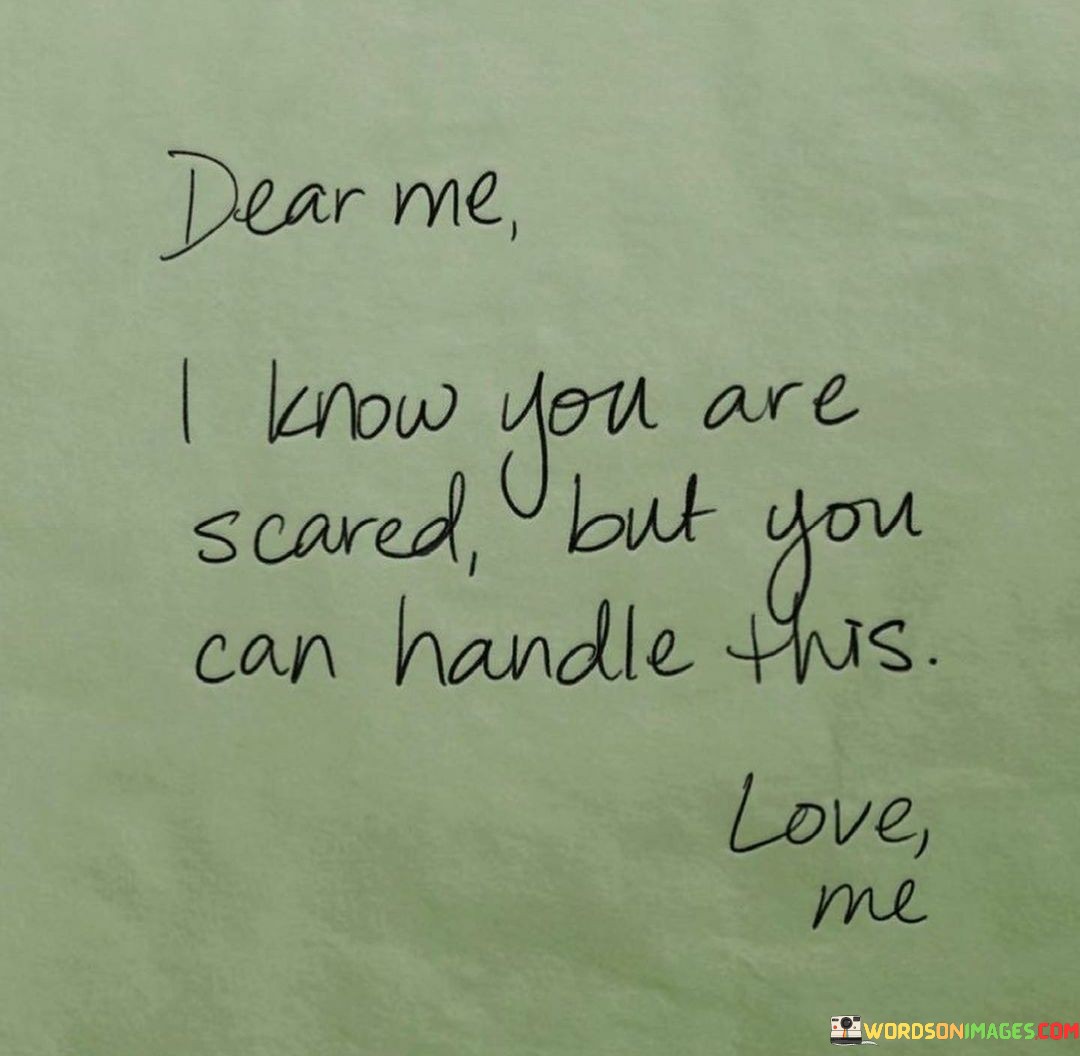 Dear me,
I know you are
scared, but you
can handle this.
Love,
me
WORDSONIMAGES.COM